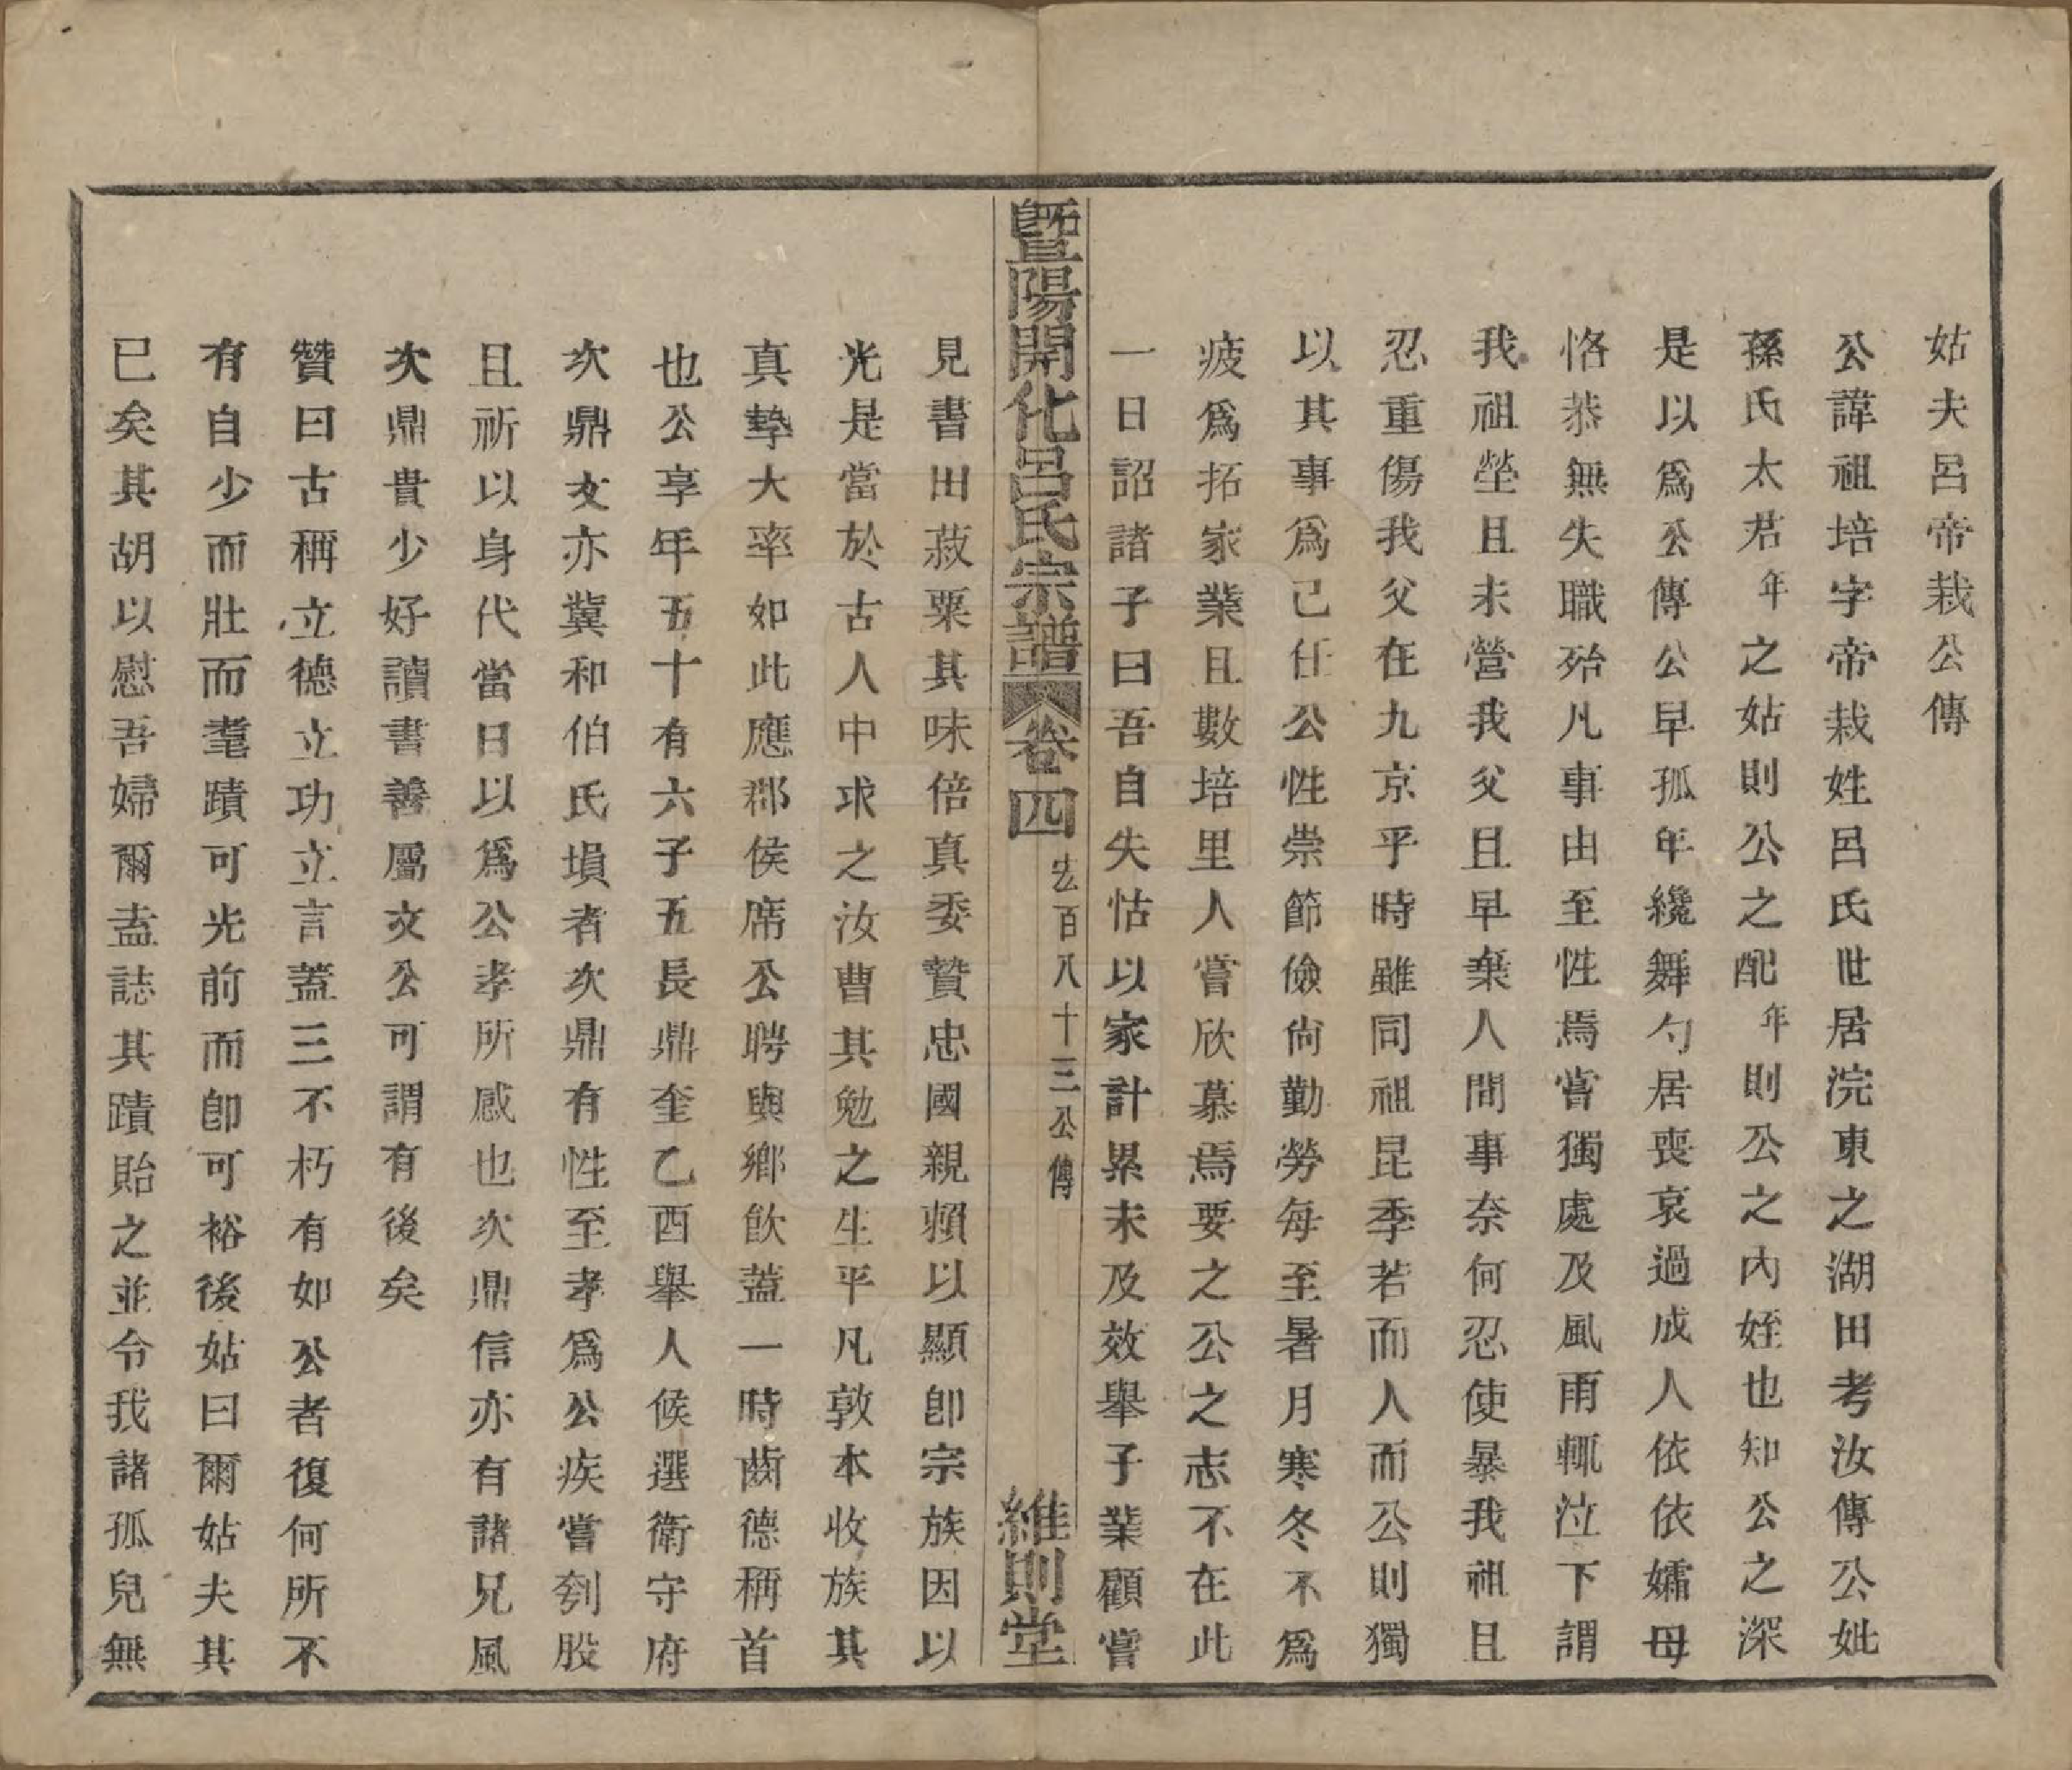 姑夫呂帝栽公傳
公諱祖培字帝栽姓呂氏世居浣東之湖田考汝傳公妣
孫氏太君年之姑則公之配年則公之內姪也知公之深
是以爲公傳公早孤年纔舞勺居喪哀過成人依依孀母
恪恭無失職殆凡事由至性焉嘗獨處及風雨輒泣下謂
我祖塋且未營我父且早棄人間事奈何忍使暴我祖且
忍重傷我父在九京乎時雖同祖昆季若而人而公則獨
以其事爲己任公性崇節儉尙勤勞每至暑月寒冬不爲
疲爲拓家業且數培里人嘗欣慕焉要之公之志不在此
一日詔諸子曰吾自失怙以家計累未及效舉子業顧嘗
暨陽開化呂氏宗譜 卷四 宏百八十三公傳 維則堂
見書田菽粟其味倍真委贄忠國親賴以顯卽宗族因以
光是當於古人中求之汝曹其勉之生平凡敦本收族其
真摯大率如此應郡侯席公聘與鄉飮蓋一時齒德稱首
也公享年五十有六子五長鼎奎乙酉舉人候選衛守府
次鼎文亦冀和伯氏塤者次鼎有性至孝爲公疾嘗刳股
且祈以身代當日以爲公孝所感也次鼎信亦有諸兄風
次鼎貴少好讀書善屬文公可謂有後矣
贊曰古稱立德立功立言蓋三不朽有如公者復何所不
有自少而壯而耄蹟可光前而卽可裕後姑曰爾姑夫其
已矣其胡以慰吾婦爾盍誌其蹟貽之並令我諸孤兒無